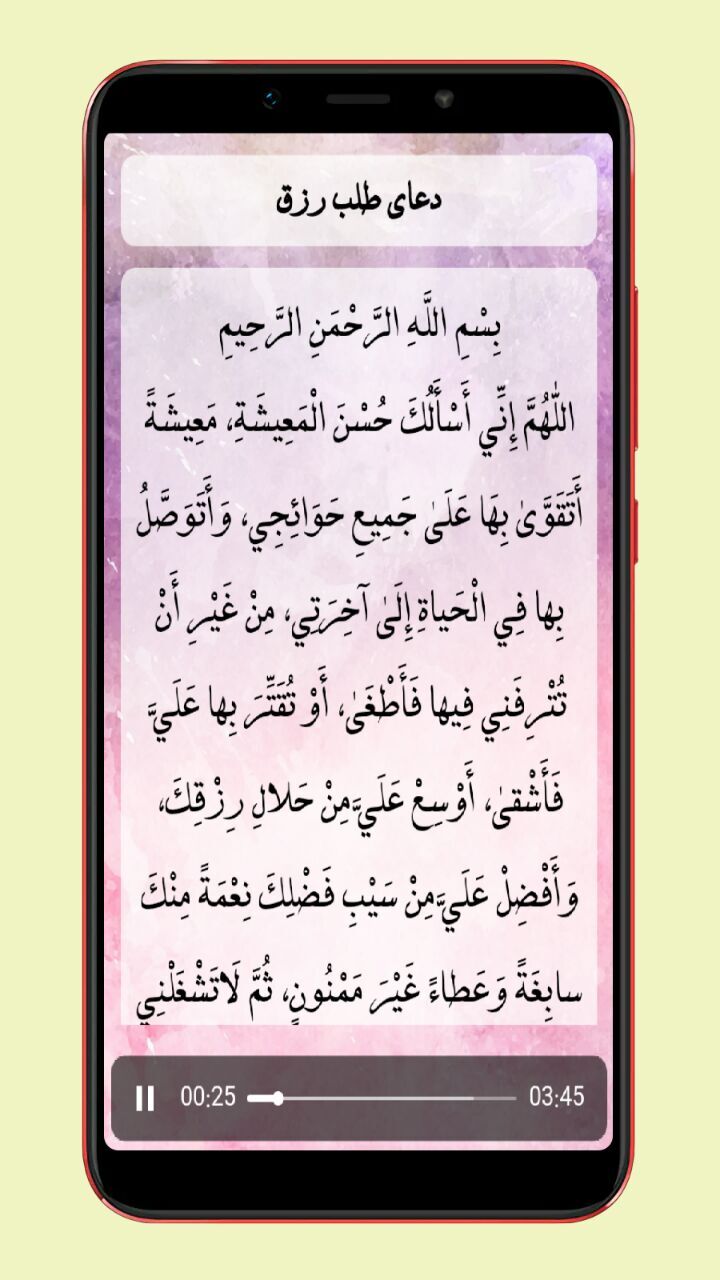 دعای طلب رزق
بِسْمِ اللَّهِ الرَّحْمَنِ الرَّحِيمِ
اللّٰهُمَّ إِنِّي أَسْأَلُكَ حُسْنَ الْمَعِيشَةِ، مَعِيشَةً
أَتَقَوَّىٰ بِهَا عَلَىٰ جَمِيعِ حَوَائِجِي، وَأَتَوَصَّلُ
بِها فِي الْحَياةِ إِلَىٰ آخِرَتِي، مِنْ غَيْرِ أَنْ
تُتْرِفَنِي فِيها فَأَطْغَىٰ، أَوْ تُقَتِّرَ بِها عَلَيَّ
فَأَشْقىٰ، أَوْسِعْ عَلَيَّ مِنْ حَلالِ رِزْقِكَ،
وَأَفْضِلْ عَلَيَّ مِنْ سَيْبِ فَضْلِكَ نِعْمَةً مِنْكَ
سابِغَةً وَعَطاءً غَيْرَ مَمْنُونٍ، ثُمَّ لَاتَشْغَلْنِي
00:25 03:45